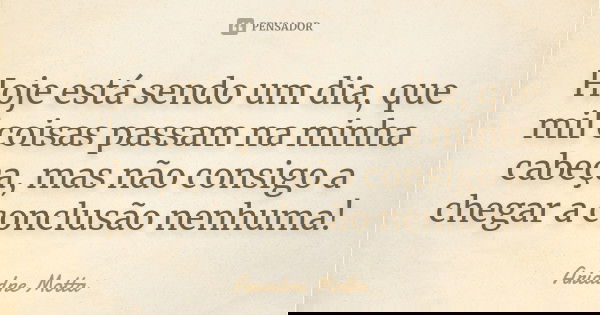 PENSADOR
Hoje está sendo um dia, que
mil coisas passam na minha
cabeça, mas não consigo a
chegar a conclusão nenhuma!
Ariadne Motta